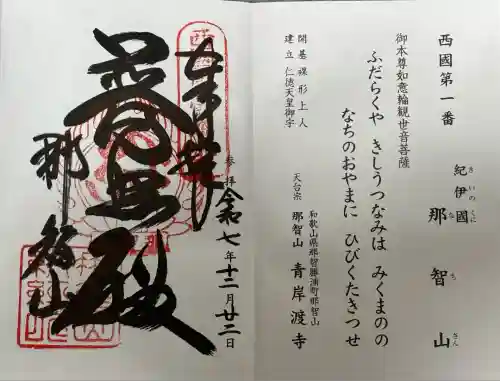 西國第一番
紀伊國
きいのくに
那智山
なちさん
御本尊如意輪観世音菩薩
ふだらくや きしうつなみは みくまのの
なちのおやまに ひびくたきつせ
開基 裸形上人
建立 仁徳天皇御宇
和歌山県那智勝浦町那智山
天台宗
那智山 青岸渡寺
奉拝
参拝
令和七年十二月廿二日
普照殿
那智山